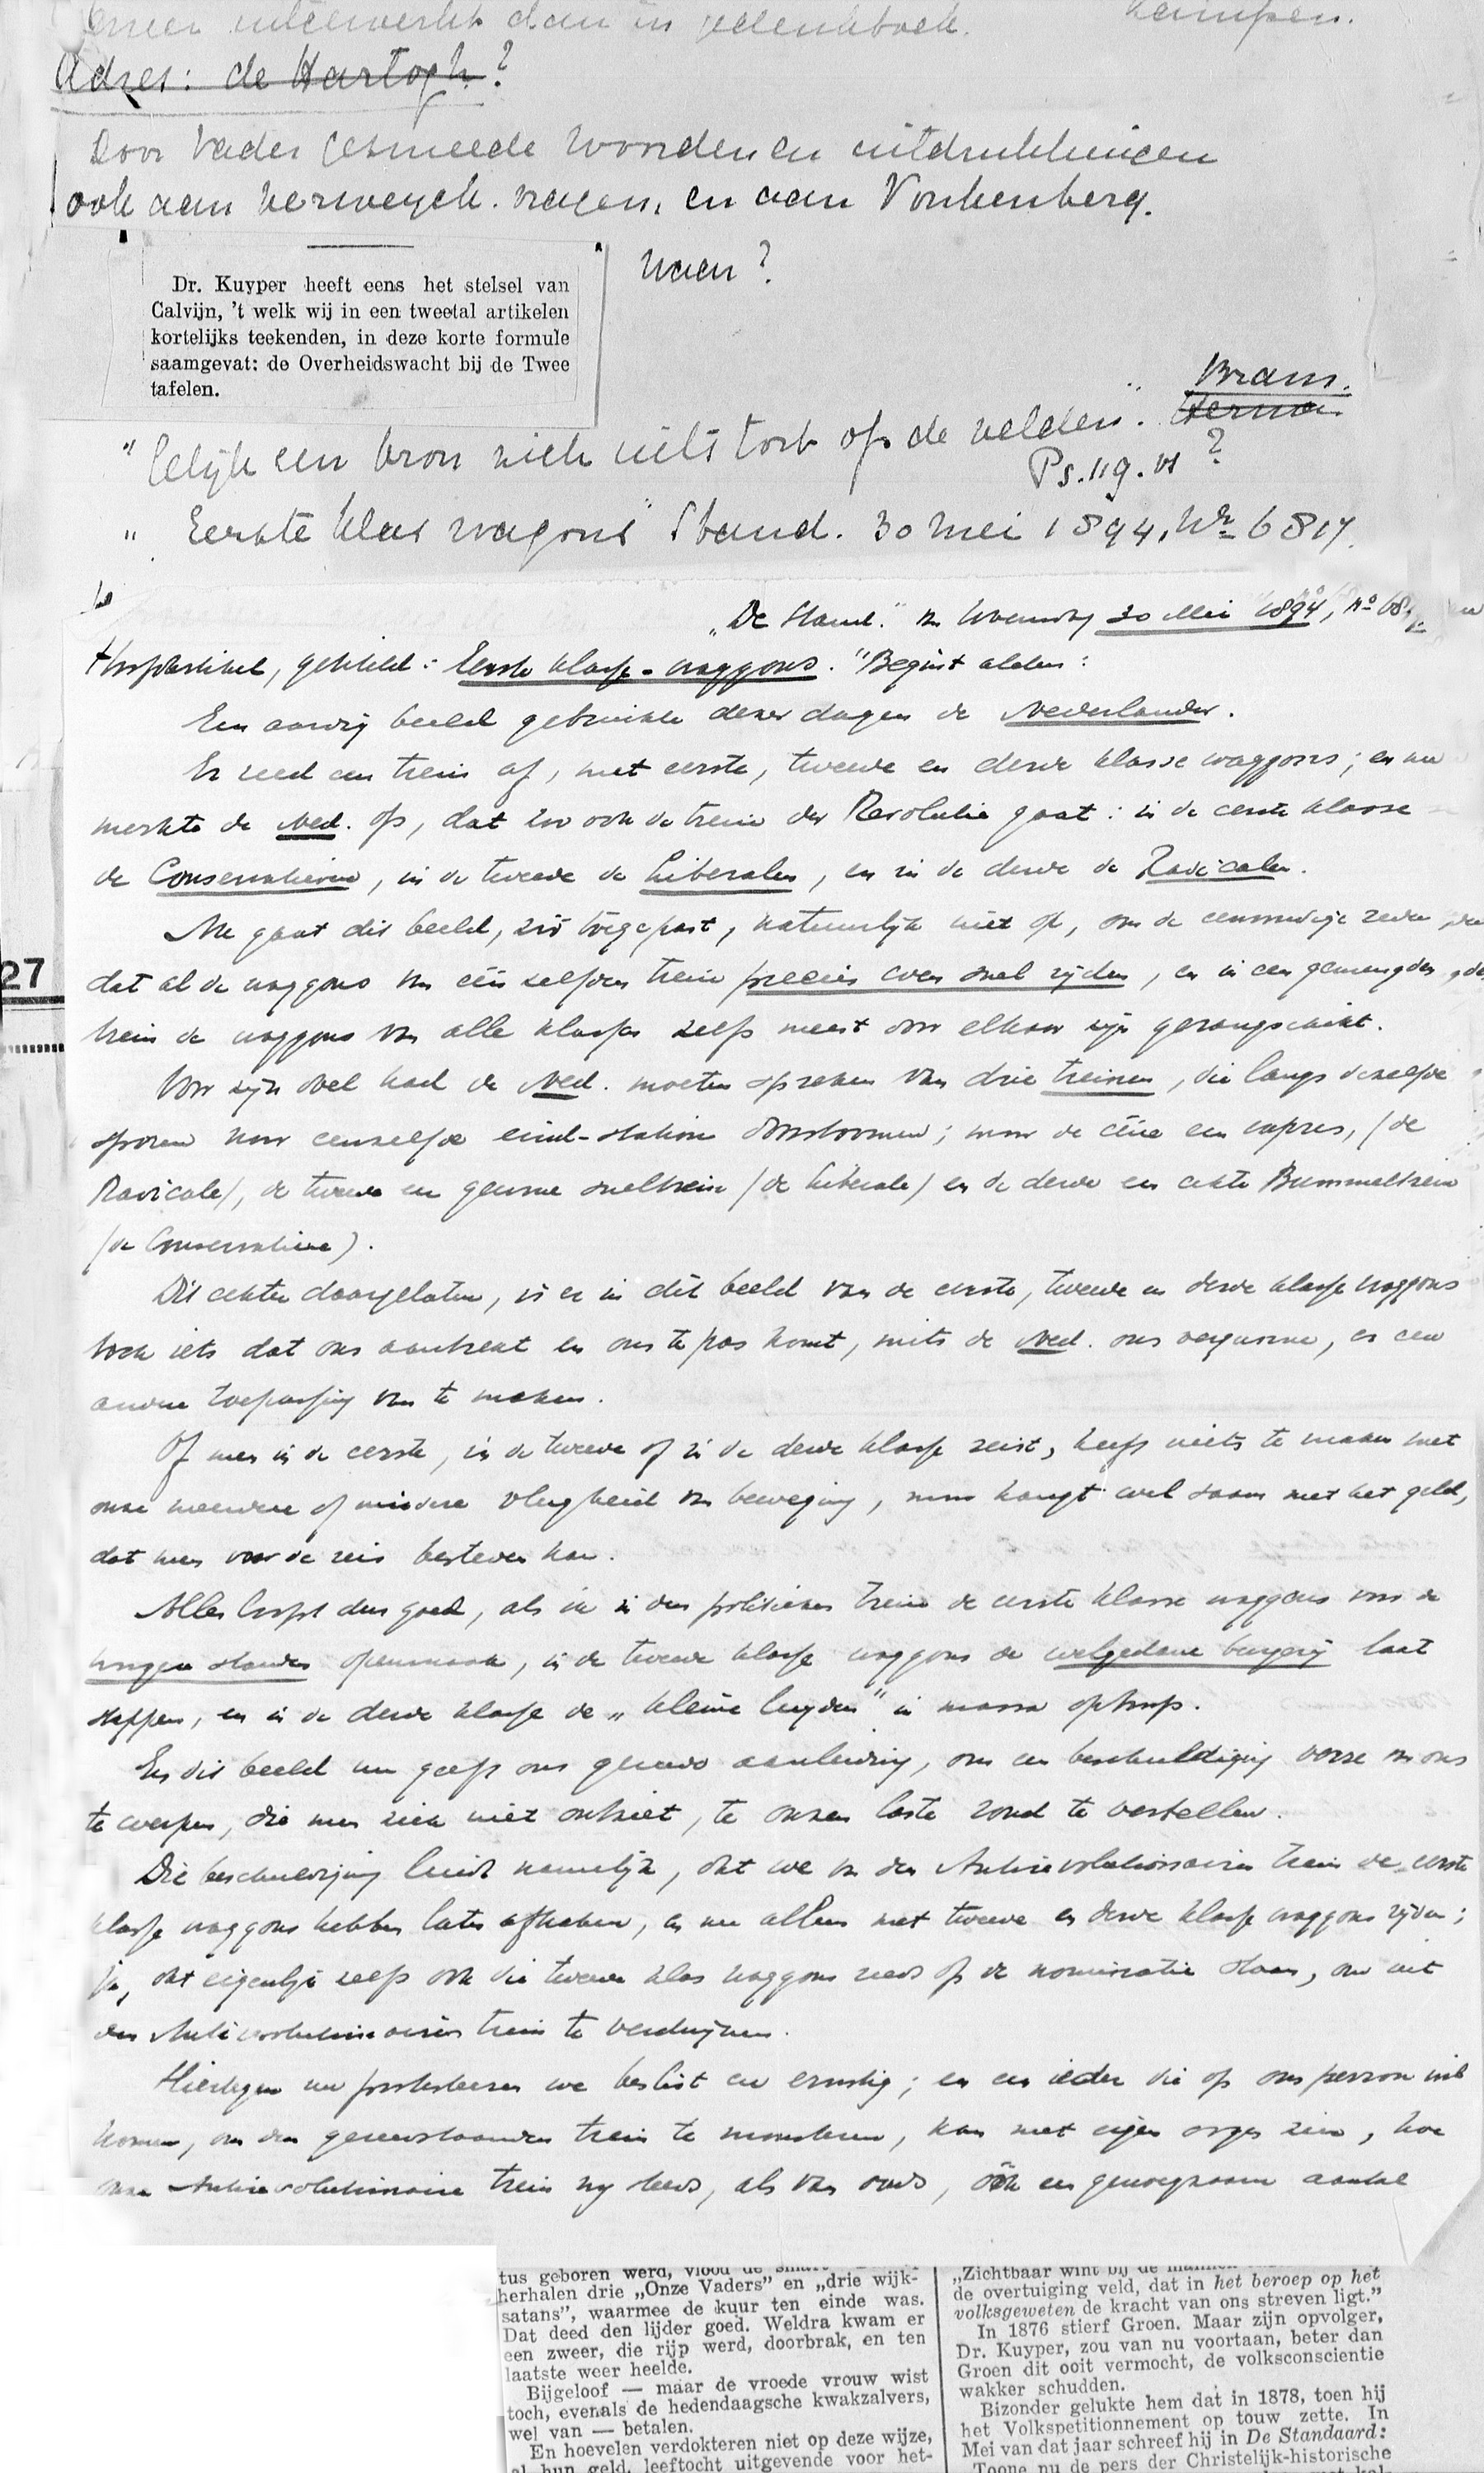 meer uitgewerkt dan in gedenkboek. Kampen.
Adres: de Hartogh?
Door Vader gesmeede woorden en uitdrukkingen
ook aan Verweyck. vragen, en aan Vonkenberg.
Dr. Kuyper heeft eens het stelsel van
Calvijn, 't welk wij in een tweetal artikelen
kortelijks teekenden, in deze korte formule
saamgevat: de Overheidswacht bij de Twee
tafelen.
Waen?
Bram.
Herman
" Gelijk een bron zich uitstort op de velden". ?
Ps. 119. vs
" Eerste klas wagons" Stand. 30 Mei 1894, Nr 6817.
"De Stand." van Woensdag 30 Mei 1894, No 68
Hoofdartikel, getiteld: "Eerste klasse-waggons." Begint aldus:
Een aardig beeld gebruikte dezer dagen de Nederlander.
Er reed een trein af, met eerste, tweede en derde klasse waggons; en nu
merkte de Ned. op, dat zoo ook de trein der Revolutie gaat: in de eerste klasse
de Conservatieven, in de tweede de Liberalen, en in de derde de Radicalen.
Nu gaat dit beeld, zóó toegepast, natuurlijk niet op, om de eenvoudige reden
dat al de waggons van één zelfden trein precies even snel rijden, en in een gemengden
trein de waggons van alle klassen zelfs meest door elkaar zijn gerangschikt.
Voor zijn doel had de Ned. moeten spreken van drie treinen, die langs dezelfde
sporen naar eenzelfde eind-station doorstoomen; maar de ééne een expres, (de
Radicale), de tweede een gewone sneltrein (de Liberale) en de derde een echte Bummeltrein
(de Conservatieve).
Dit echter daargelaten, is er in dit beeld van de eerste, tweede en derde klasse waggons
toch iets dat ons aantrekt en ons te pas komt, mits de Ned. ons vergunne, er een
andere toepassing van te maken.
Of men in de eerste, in de tweede of in de derde klasse reist, heeft niets te maken met
onze meerdere of mindere vlugheid van beweging, maar hangt wel saam met het geld,
dat men voor de reis besteden kan.
Alles loopt dus goed, als ik in den politieken trein de eerste klasse waggons voor de
hoogere standen openmaak, in de tweede klasse waggons de welgedane burgerij laat
stappen, en in de derde klasse de "kleine luyden" in massa ophoop.
En dit beeld nu geeft ons gereede aanleiding, om een beschuldiging verre van ons
te werpen, die men zich niet ontziet, te onzen laste rond te vertellen.
Die beschuldiging luidt namelijk, dat we van den Antirevolutionairen trein de eerste
klasse waggons hebben laten afhaken, en nu alleen met tweede en derde klasse waggons rijden;
ja, dat eigenlijk zelfs ook die tweede klas waggons reeds op de nominatie staan, om uit
den Antirevolutionairen trein te verdwijnen.
Hiertegen nu protesteeren we beslist en ernstig; en een ieder die op ons perron wil
komen, om den gereedstaanden trein te monsteren, kan met eigen oogen zien, hoe
onze Antirevolutionaire trein nog steeds, als van ouds, óók een genoegzaam aantal
27
tus geboren werd, vlood de
herhalen drie „Onze Vaders" en „drie wijk-
satans", waarmee de kuur ten einde was.
Dat deed den lijder goed. Weldra kwam er
een zweer, die rijp werd, doorbrak, en ten
laatste weer heelde.
Bijgeloof — maar de vroede vrouw wist
toch, evenals de hedendaagsche kwakzalvers,
wel van — betalen.
En hoevelen verdokteren niet op deze wijze,
al hun geld, leeftocht uitgevende voor het-
„Zichtbaar wint bij de mannen
de overtuiging veld, dat in het beroep op het
volksgeweten de kracht van ons streven ligt."
In 1876 stierf Groen. Maar zijn opvolger,
Dr. Kuyper, zou van nu voortaan, beter dan
Groen dit ooit vermocht, de volksconscientie
wakker schudden.
Bizonder gelukte hem dat in 1878, toen hij
het Volkspetitionnement op touw zette. In
Mei van dat jaar schreef hij in De Standaard:
Toone nu de pers der Christelijk-historische